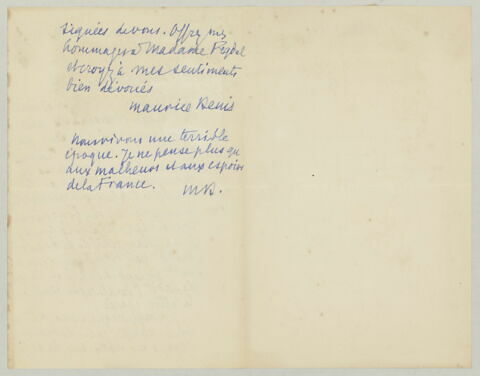 signées de vous. Offrez mes
hommages à Madame Feydel
et croyez à mes sentiments
bien dévoués
Maurice Denis
Nous vivons une terrible
époque. Je ne pense plus qu'
aux malheurs et aux espoirs
de la France.
M.D.